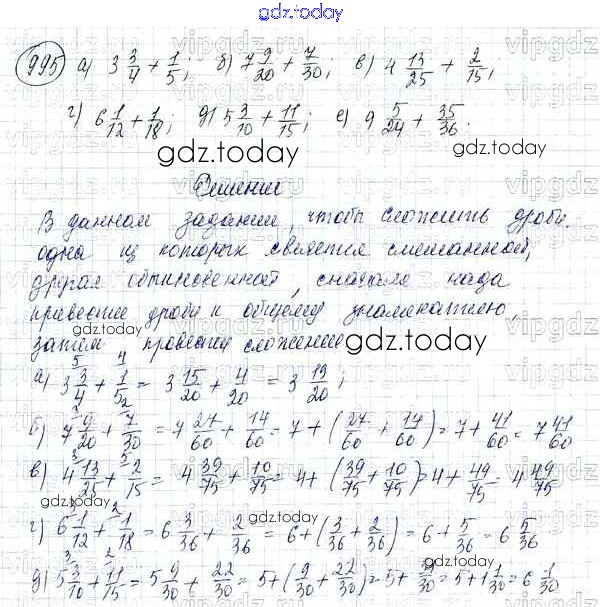 gdz.today
995 а) 3 3/4 + 1/5; б) 7 9/20 + 7/30; в) 4 13/25 + 2/15;
г) 6 1/12 + 1/18; д) 5 3/10 + 11/15; е) 9 5/24 + 35/36.
gdz.today gdz.today
Решение
В данном задании, чтобы сложить дроби,
одна из которых является смешанной,
другая обыкновенной, сначала надо
привести дроби к общему знаменателю,
gdz.today
затем провести сложение
gdz.today
а) 3 3/4 + 1/5 = 3 15/20 + 4/20 = 3 19/20;
б) 7 9/20 + 7/30 = 7 27/60 + 14/60 = 7 + (27/60 + 14/60) = 7 + 41/60 = 7 41/60
в) 4 13/25 + 2/15 = 4 39/75 + 10/75 = 4 + (39/75 + 10/75) = 4 + 49/75 = 4 49/75
gdz.today
г) 6 1/12 + 1/18 = 6 3/36 + 2/36 = 6 + (3/36 + 2/36) = 6 + 5/36 = 6 5/36
gdz.today
д) 5 3/10 + 11/15 = 5 9/30 + 22/30 = 5 + (9/30 + 22/30) = 5 + 31/30 = 5 + 1 1/30 = 6 1/30